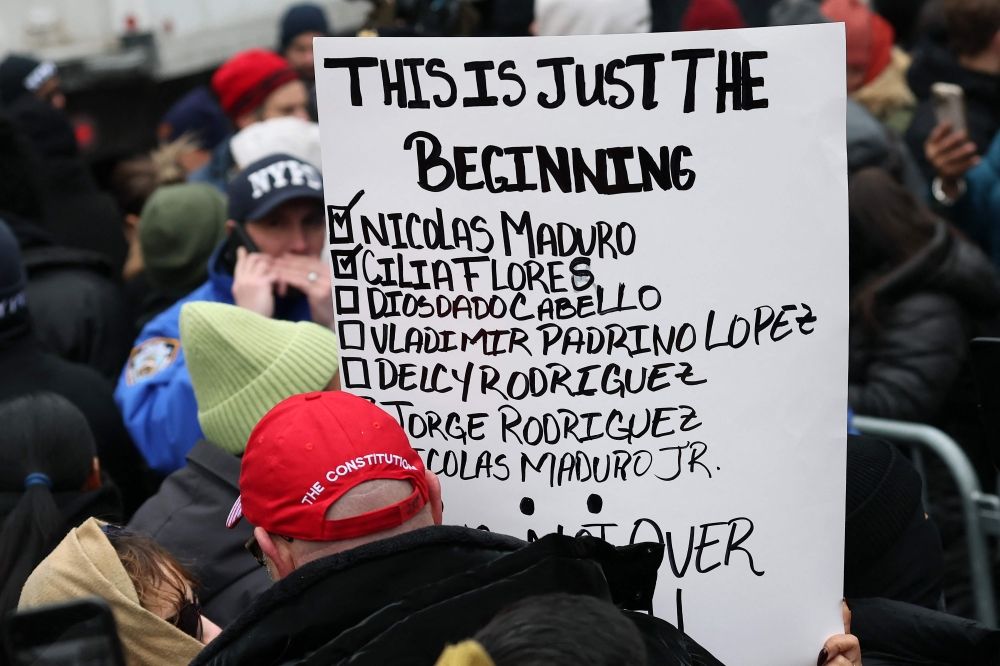 THIS IS JUST THE
BEGINNING
NICOLAS MADURO
CILIA FLORES
DIOSDADO CABELLO
VLADIMIR PADRINO LOPEZ
DELCY RODRIGUEZ
JORGE RODRIGUEZ
NICOLAS MADURO JR.
NOT OVER
NYPD
THE CONSTITUTION